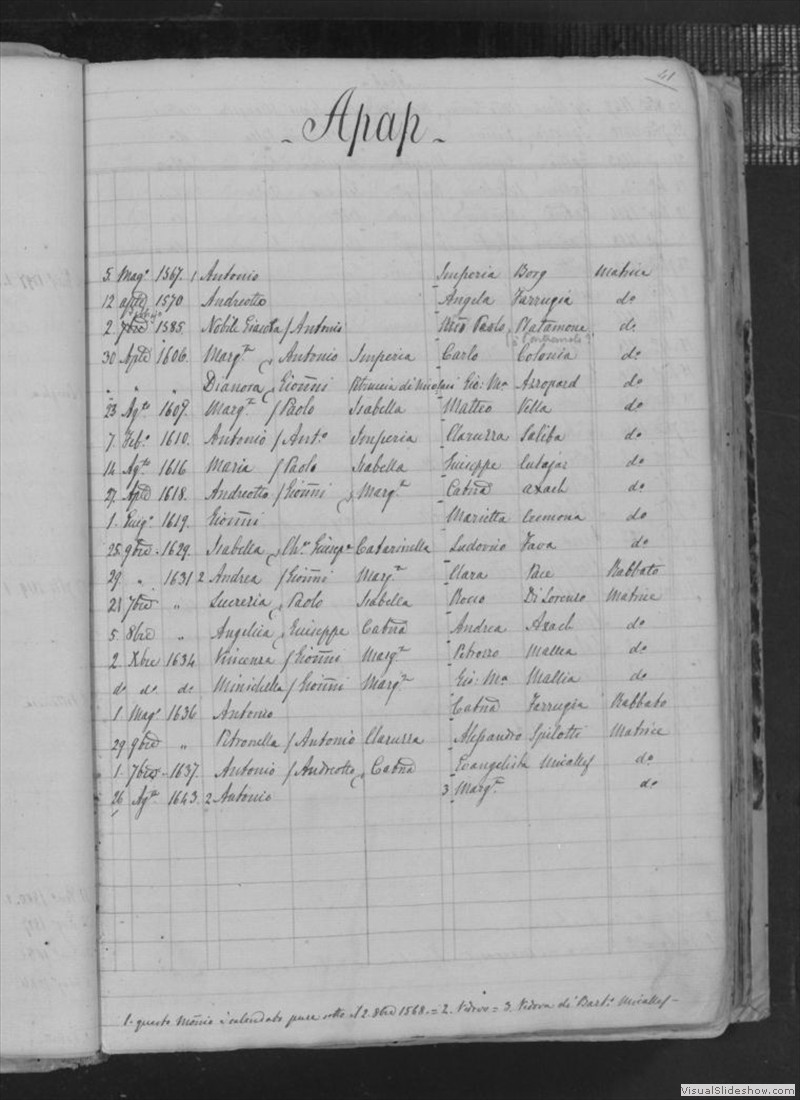 41
- Apap -
5 Mag.o 1567. 1 Antonio Imperia Borg Matrice
12 aple 1570 Andreotta Angela Farrugia do
2. 7bre 1585. Nobile Giacoba / Antonio Paolo Platamona do
30 Aple 1606. Marg.ta / Antonio Imperia Carlo Colonia do
" " " Dianora / Gioñni Gio: Ma Azzopard do
23 Ag.to 1609. Marg.ta / Paolo Isabella Matteo Villa do
7 Feb.o 1610. Antonio / Ant.o Imperia Claruzza Saliba do
14 Ag.to 1616 Maria / Paolo Isabella Giuseppe Cutajar do
27 Aple 1618. Andreotta / Gioñni Marg.ta Catñā axach do
1. Giug.o 1619. Gioñni Marietta Cremona do
25. 9bre 1629. Isabella Giusep.e Catarinella Ludovico Fava do
29 " 1631 2 Andrea / Gioñni Marg.ta Clara Pace Rabbato
21 7bre " Lucrezia Paolo Isabella Rocco Di Lorenzo Matrice
5 8bre " Angelica Giuseppe Catñā Andrea Axach do
2 Xbre 1634 Vincenza / Gioñni Marg.ta Petruzzo Mallia do
do do do Minichella / Gioñni Marg.ta Gio: Ma Mallia do
1 Mag.o 1636 Antonio Catñā Farrugia Rabbato
29 9bre " Petronella / Antonio Claruzza Alessandro Spilotti Matrice
1. 7bre 1637. Antonio / Andreotta Catñā Evangelista Micallef do
26 Ag.to 1643. 2 Antonio 3 Marg.ta do
1. questo è calendato pure sotto il 2. 8bre 1568. = 2. Vedovo = 3. Vedova di Bart.o Micallef -
VisualSlideshow.com